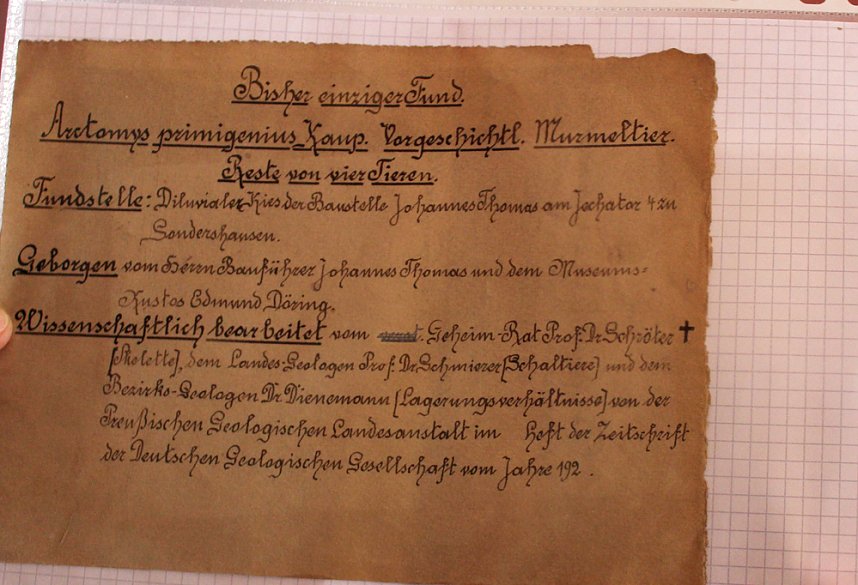 Bisher einziger Fund.
Arctomys primigenius Kaup. Vorgeschichtl. Murmeltier.
Reste von vier Tieren.
Fundstelle: Diluvialer Kies der Baustelle Johannes Thomas am Jechator 4 zu
Sondershausen.
Geborgen vom Herrn Bauführer Johannes Thomas und dem Museums-
Kustos Edmund Döring.
Wissenschaftlich bearbeitet vom Geheim-Rat Prof. Dr. Schröter †
[Skelette], dem Landes-Geologen Prof. Dr. Schmierer [Schaltiere] und dem
Bezirks-Geologen Dr. Dienemann [Lagerungsverhältnisse] von der
Preußischen Geologischen Landesanstalt im Heft der Zeitschrift
der Deutschen Geologischen Gesellschaft vom Jahre 192 .